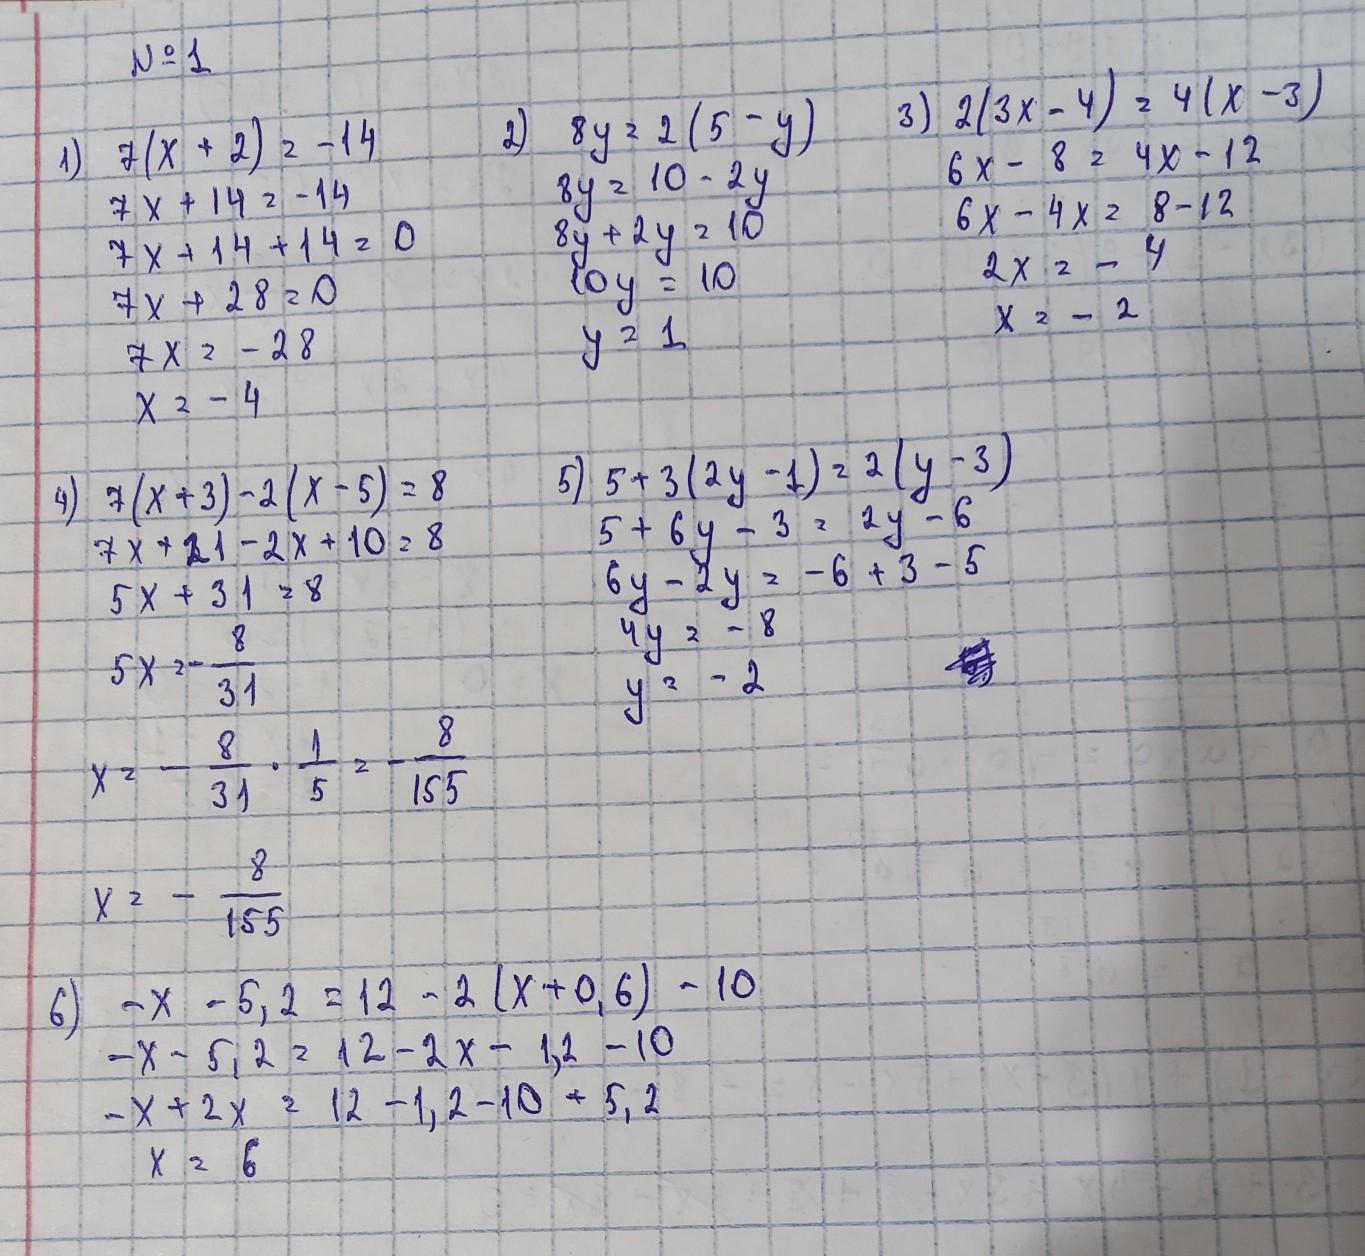 № 1
1) 7(x + 2) = -14
7x + 14 = -14
7x + 14 + 14 = 0
7x + 28 = 0
7x = -28
x = -4
2) 8y = 2(5 - y)
8y = 10 - 2y
8y + 2y = 10
10y = 10
y = 1
3) 2(3x - 4) = 4(x - 3)
6x - 8 = 4x - 12
6x - 4x = 8 - 12
2x = -4
x = -2
4) 7(x + 3) - 2(x - 5) = 8
7x + 21 - 2x + 10 = 8
5x + 31 = 8
5x = - 8/31
x = - 8/31 · 1/5 = - 8/155
x = - 8/155
5) 5 + 3(2y - 1) = 2(y - 3)
5 + 6y - 3 = 2y - 6
6y - 2y = -6 + 3 - 5
4y = -8
y = -2
6) -x - 5,2 = 12 - 2(x + 0,6) - 10
-x - 5,2 = 12 - 2x - 1,2 - 10
-x + 2x = 12 - 1,2 - 10 + 5,2
x = 6